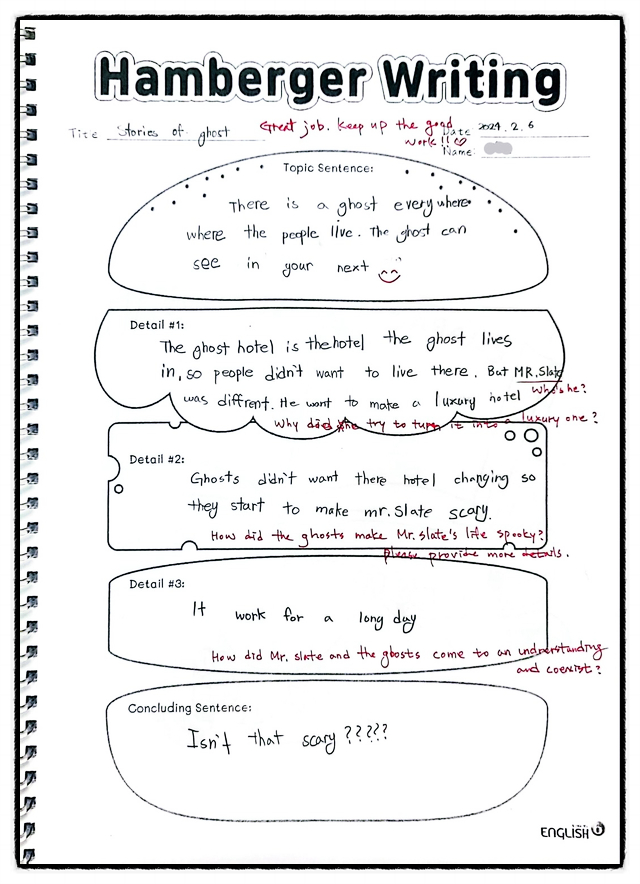 Hamberger Writing
Title Stories of ghost
Great job. Keep up the good
work!!
Date 2024. 2. 6
Name
Topic Sentence:
There is a ghost everywhere
where the people live. The ghost can
see in your next
Detail #1:
The ghost hotel is the hotel the ghost lives
in, so people didn't want to live there. But MR.Slate
who's he?
was diffrent. He want to make a luxury hotel
Why did he try to turn it into a luxury one?
Detail #2:
Ghosts didn't want there hotel changing so
they start to make mr. Slate scary.
How did the ghosts make Mr. Slate's life spooky?
Please provide more details.
Detail #3:
It work for a long day
How did Mr. Slate and the ghosts come to an understanding
and coexist?
Concluding Sentence:
Isn't that scary?????
ENGLISH